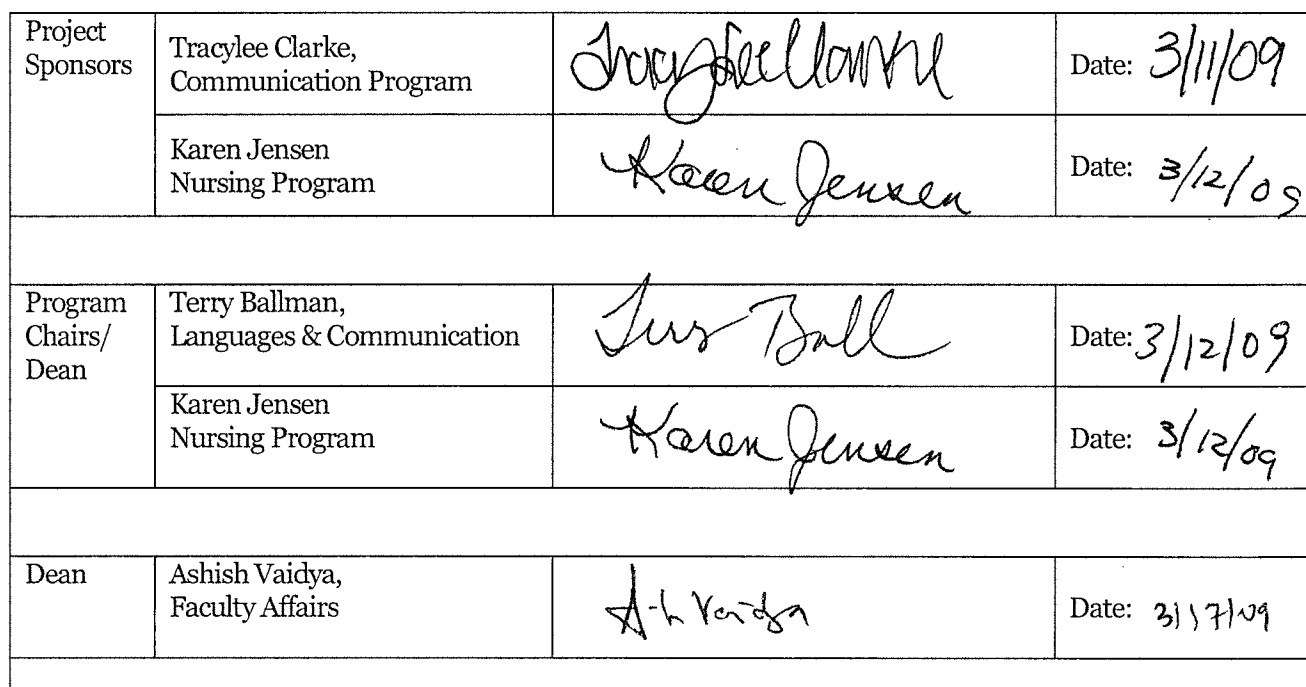 Project
Sponsors
Tracylee Clarke,
Communication Program
Tracylee Clarke
Date: 3/11/09
Karen Jensen
Nursing Program
Karen Jensen
Date: 3/12/09
Program
Chairs/
Dean
Terry Ballman,
Languages & Communication
Terry Ball
Date: 3/12/09
Karen Jensen
Nursing Program
Karen Jensen
Date: 3/12/09
Dean
Ashish Vaidya,
Faculty Affairs
A-h Vaidya
Date: 3/17/09